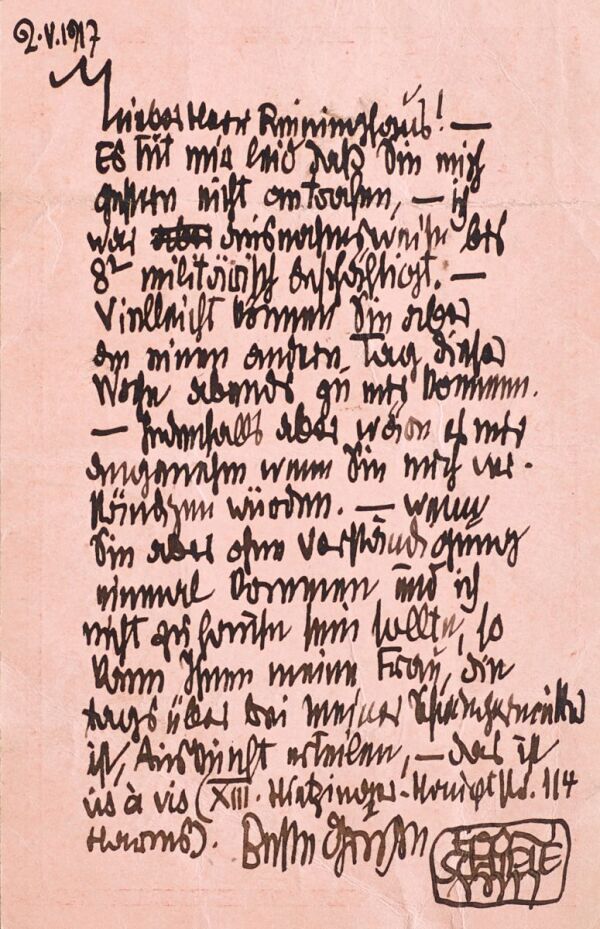 2.V.1917
Lieber Herr Reininghaus! —
Es tut mir leid daß Sie mich
gestern nicht antrafen, — ich
war aber ausnahmsweise bis
8h militärisch beschäftigt. —
Vielleicht können Sie aber
an einem andern Tag dieser
Woche abends zu mir kommen.
— Jedenfalls aber wäre es mir
angenehm wenn Sie mich ver-
ständigen würden. — wenn
Sie aber ohne Verständigung
einmal kommen und ich
nicht zu hause sein sollte, so
kann Ihnen meine Frau, die
tags über bei meiner Schwiegermutter
ist, Auskunft erteilen, — das ist
vis à vis (XIII. Hietzinger-Hauptst No. 114
Harms). Beste Grüße
EGON
SCHIELE